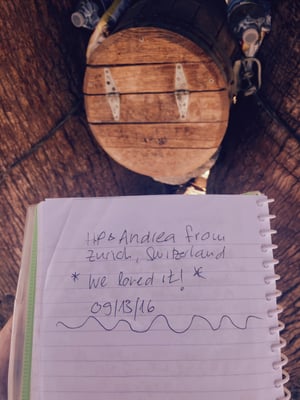 HP & Andrea from
Zurich, Switzerland
* We loved it! *
09/13/16